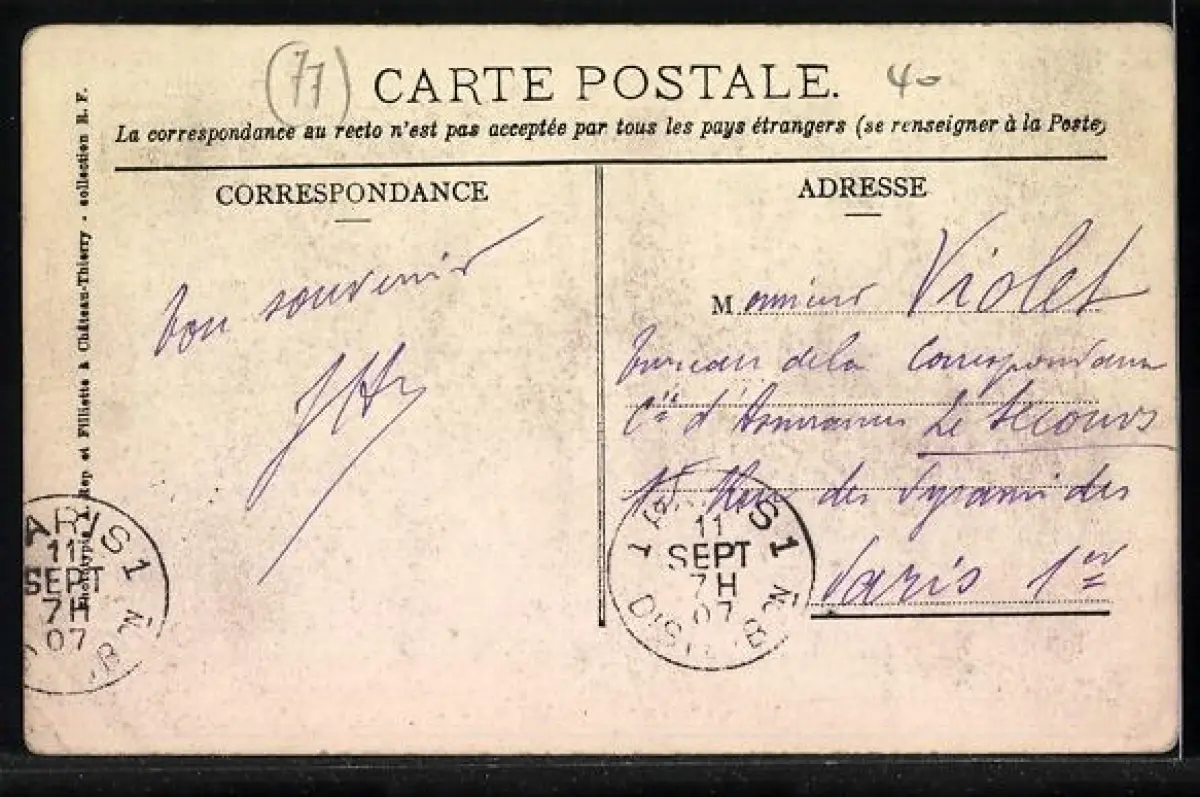 (77)
CARTE POSTALE.
40
La correspondance au recto n'est pas acceptée par tous les pays étrangers (se renseigner à la Poste)
CORRESPONDANCE
bon souvenir
ADRESSE
Monsieur Violet
bureau de la Correspondance
Cie d'Assurances Le Secours
Rue des Pyramides
Paris 1er
Rep et Filliette à Château-Thierry - collection R. F.
PARIS 1
11
SEPT
7H
07
PARIS 1
11
SEPT
7H
07
DISTRIB